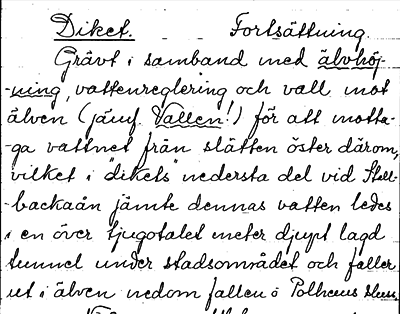 Diket. Fortsättning.
Grävt i samband med älvhöj-
-ning, vattenreglering och vall mot
älven (jämf. Vallen!) för att motta-
ga vattnet från slätten öster därom,
vilket i "dikets" nedersta del vid Stall-
-backaån jämte dennas vatten ledes
i en över tjugotalet meter djupt lagd
tunnel under stadsområdet och faller
ut i älven nedom fallen o Polhems sluss.